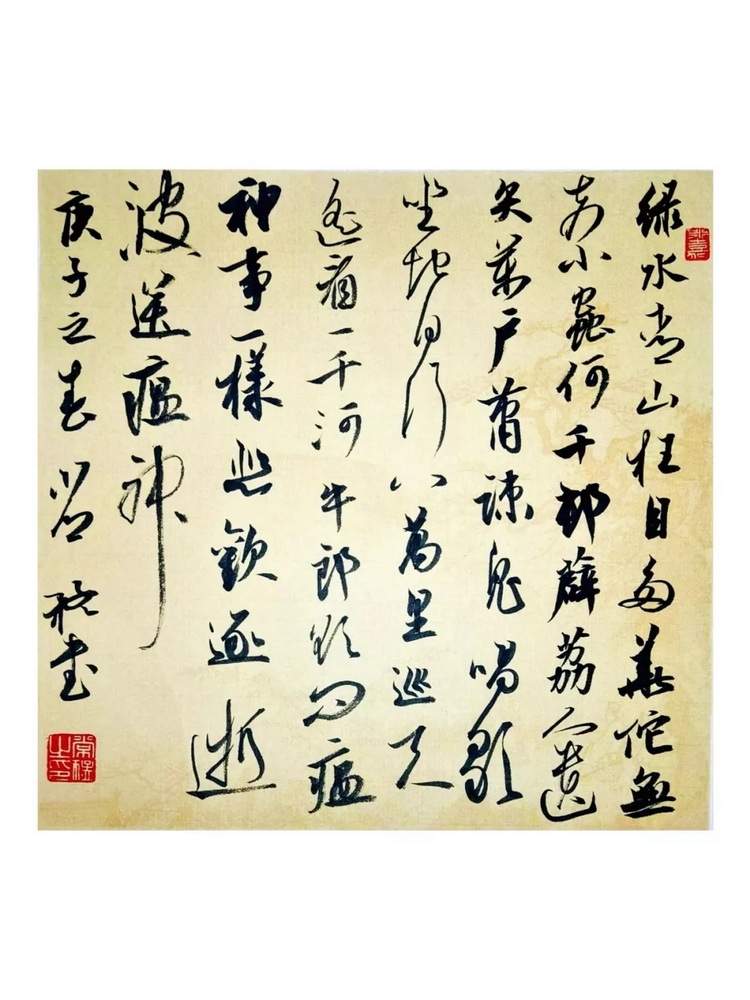 绿水青山枉自多華佗無
奈小蟲何千邨薜荔人遺
矢萬户蕭疎鬼唱歌
坐地日行八萬里巡天
遥看一千河牛郎欲問瘟
神事一樣悲歡逐逝
波送瘟神
庚子之春常书